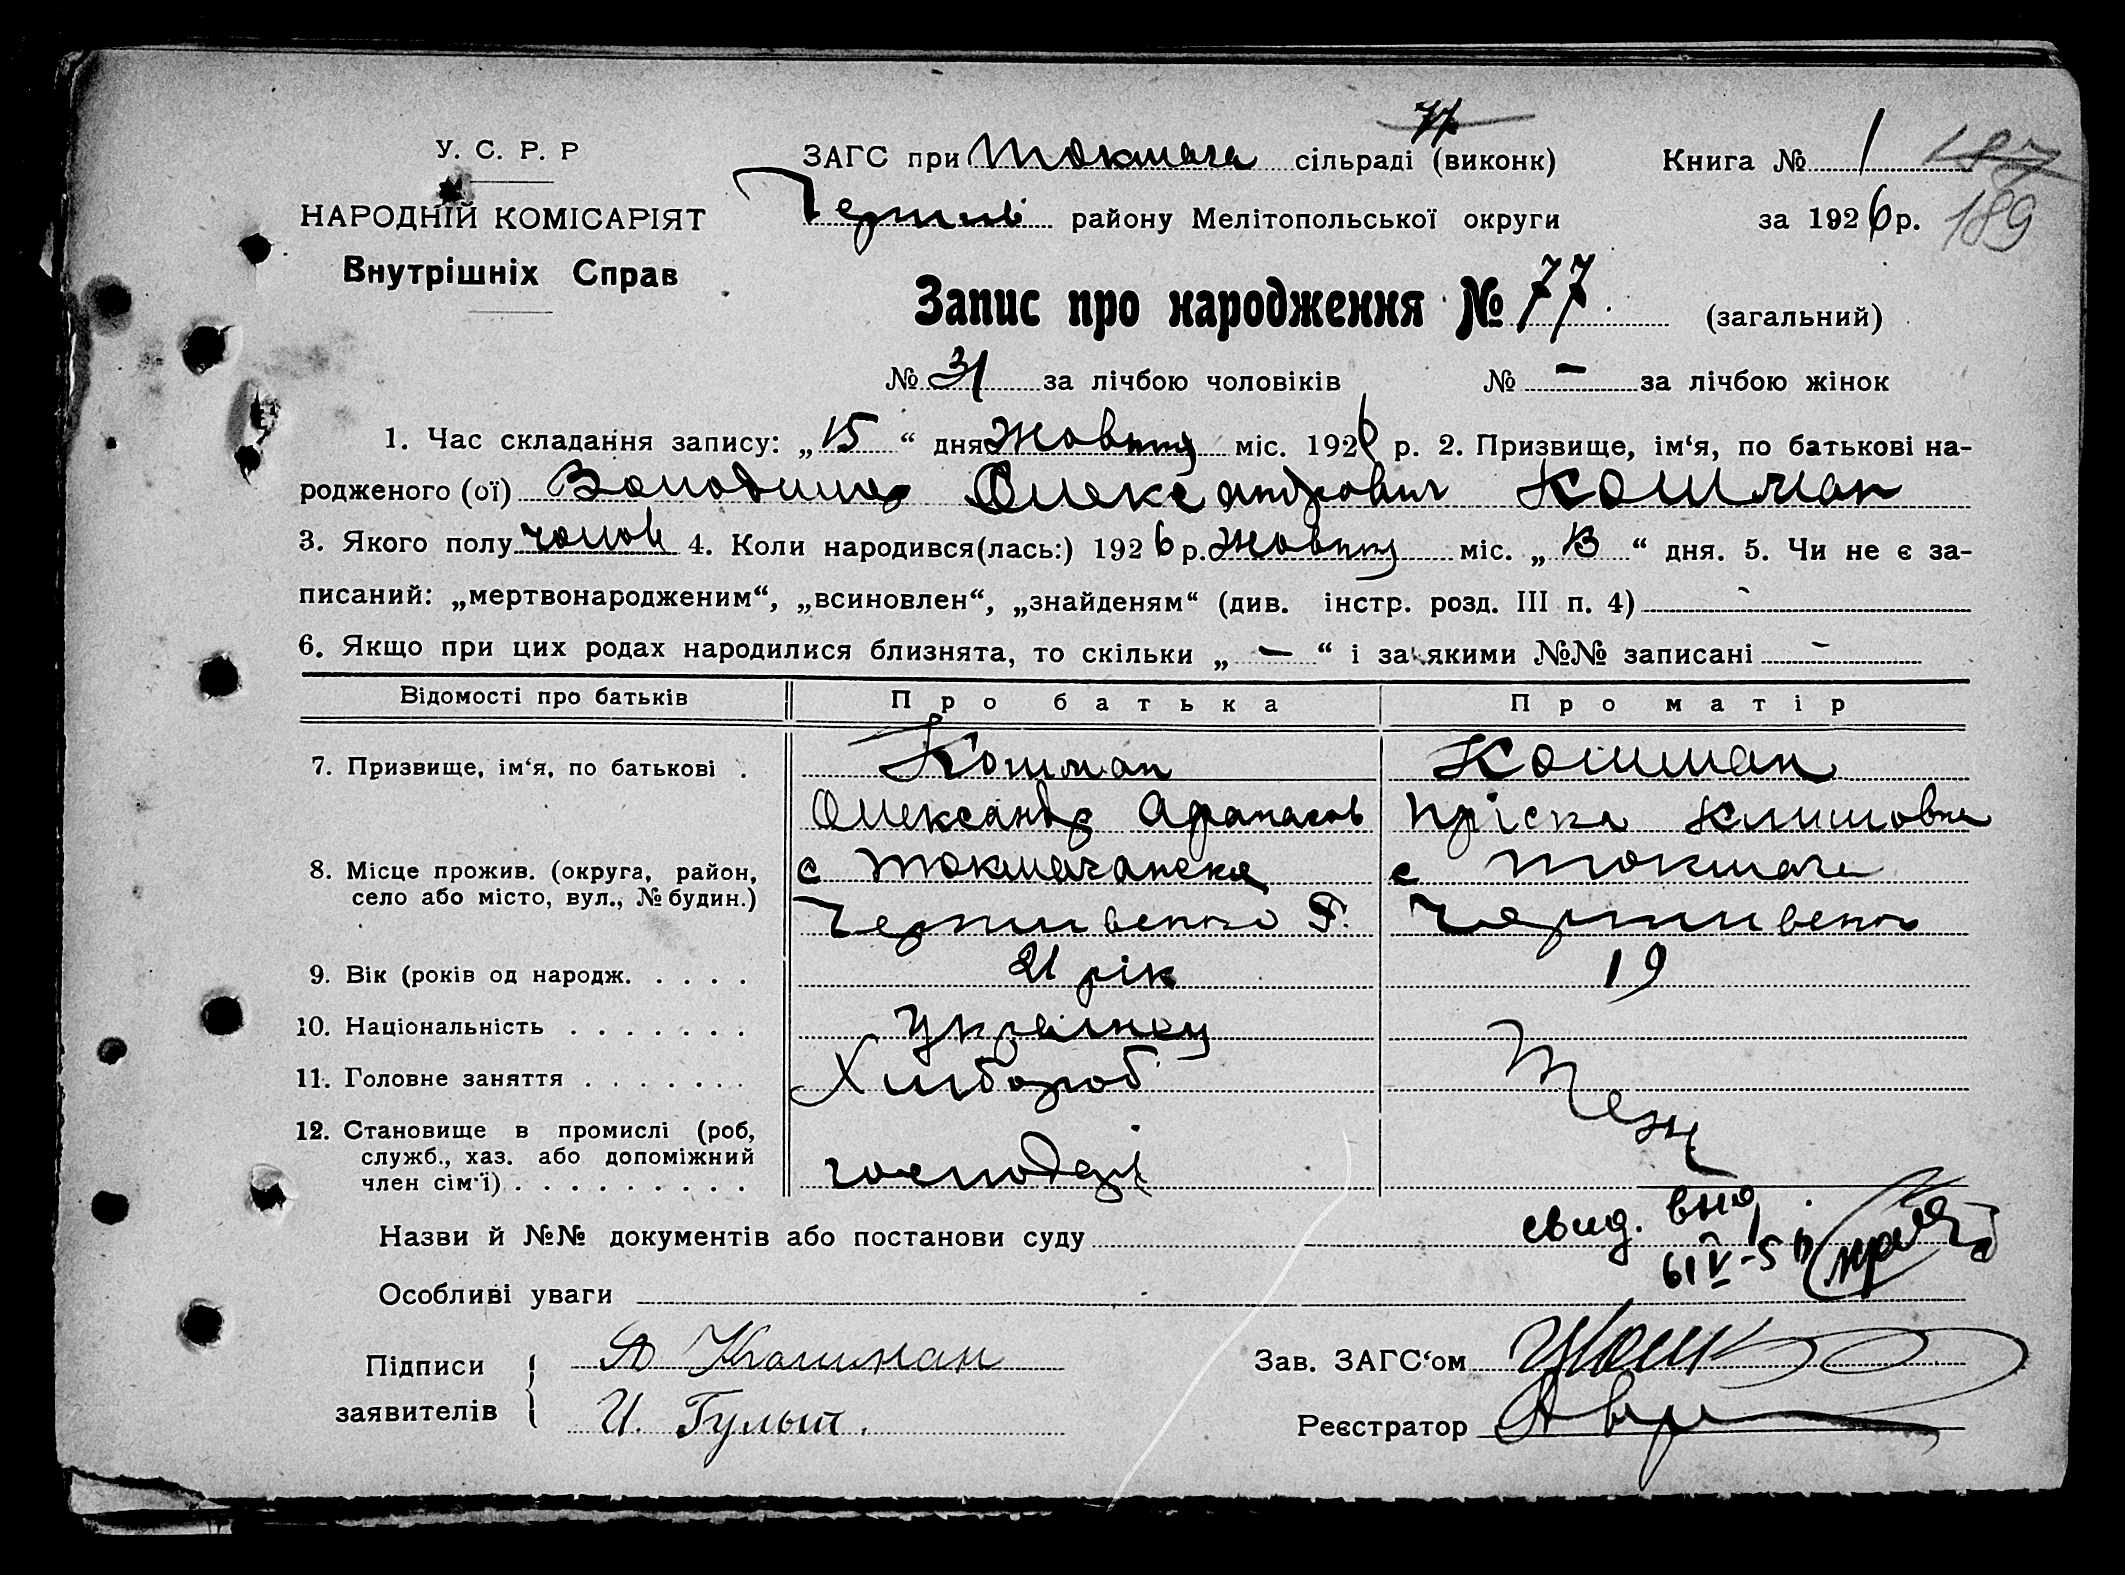 77
У. С. Р. Р ЗАГС при Токмача сільраді (виконк) Книга № 1 187
НАРОДНІЙ КОМІСАРІЯТ району Мелітопольської округи за 1926 р. 189
Внутрішніх Справ
Запис про народження № 77 (загальний)
№ 31 за лічбою чоловіків № – за лічбою жінок
1. Час складання запису: „15“ дня Жовтня міс. 1926 р. 2. Призвище, ім‘я, по батькові на-
родженого (ої) Володимир Олександрович Кошман
3. Якого полу чолов 4. Коли народився(лась:) 1926 р. Жовтня міс. „13“ дня. 5. Чи не є за-
писаний: „мертвонародженим“, „всиновлен“, „знайденям“ (див. інстр. розд. III п. 4) -
6. Якщо при цих родах народилися близнята, то скільки „ – “ і за якими №№ записані –
Відомості про батьків Про батька Про матір
7. Призвище, ім‘я, по батькові . Кошман Кошман
Олександр Афанасов Пріска Климовна
8. Місце прожив. (округа, район, с Токмачанска с Токмача
село або місто, вул., № будин.)
9. Вік (років од народж. . . . . 21 рік 19
10. Національність . . . . . . . Українец
11. Головне заняття . . . . . . . Хлібороб Теж
12. Становище в промислі (роб,
служб., хаз. або допоміжний
член сім‘ї) . . . . . . . . . господарі
Назви й №№ документів або постанови суду свид.
Особливі уваги
Підписи А Кошман Зав. ЗАГС‘ом
заявителів И. Гулый. Реєстратор